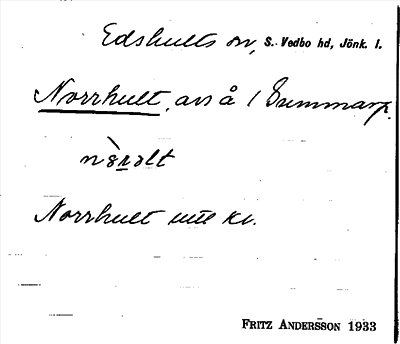 Edshults sn, S. Vedbo hd, Jönk. l.
Norrhult, avs å 1 Summarp.
Norrhult utt kv.
FRITZ ANDERSSON 1933